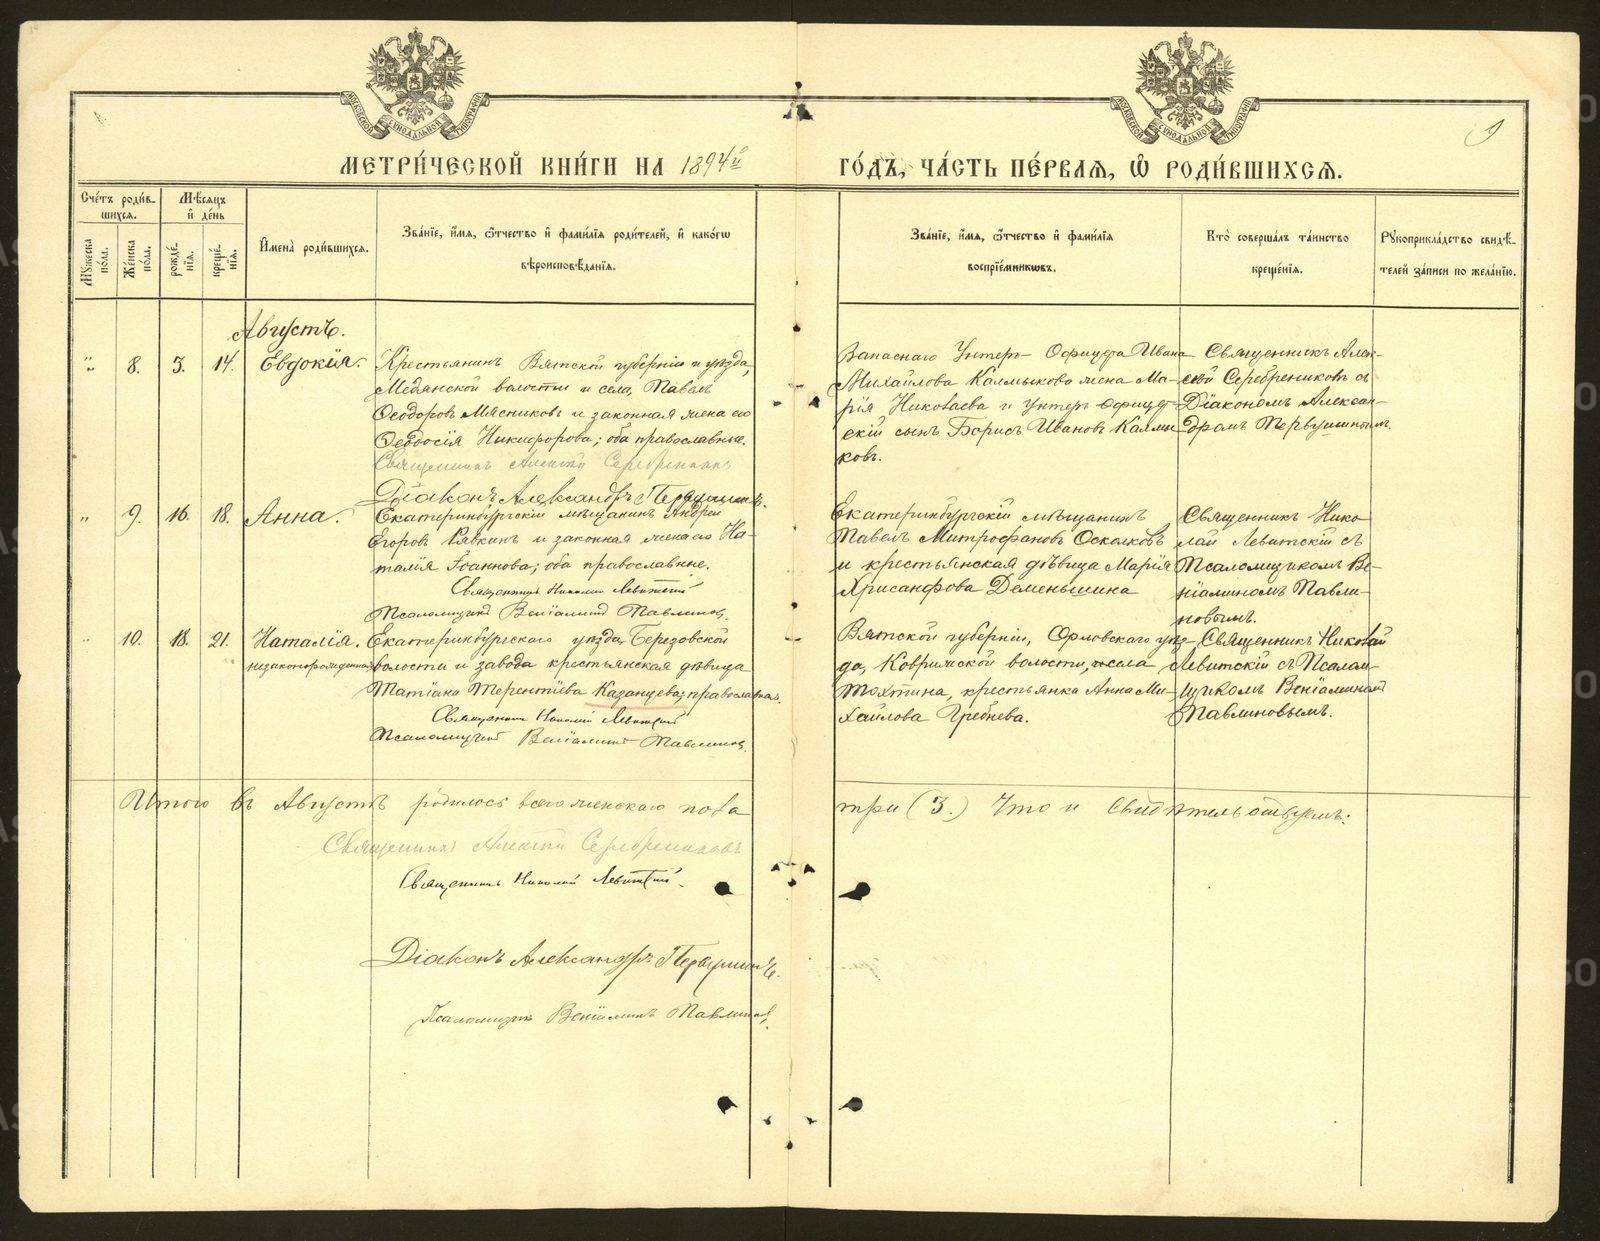 МОСКОВСКОЙ СѴНОДАЛЬНОЙ ТИПОГРАФІИ
МОСКОВСКОЙ СѴНОДАЛЬНОЙ ТИПОГРАФІИ
МЕТРИ́ЧЕСКОЙ КНИ́ГИ НА 1894й
ГО́ДЪ, ЧА́СТЬ ПЕ́РВАѦ, Ѡ҆ РОДИ́ВШИХСѦ.
Сче́тъ роди́в-
шихся.
Мѣ́сяцъ
и҆ де́нь
Мꙋ́жеска по́ла.
Же́нска по́ла.
рожде́нїя.
креще́нїя.
И҆мена̀ роди́вшихся.
Зва́нїе, и҆́мя, ѻ҆́тчество и҆ фами́лїя роди́телей, и҆ како́гѡ
вѣроисповѣ́данїя.
Зва́нїе, и҆́мя, ѻ҆́тчество и҆ фами́лїя
воспрїе́мникѡвъ.
Кто̀ соверша́лъ та́инство
креще́нїя.
Рꙋкоприкла́дство свидѣ́-
телей за́писи по жела́нїю.
Августъ.
" 8. 5. 14. Евдокія.
Крестьянинъ Вятской губерніи и уѣзда,
Медянской волости и села, Павелъ
Ѳеодоровъ Мясниковъ и законная жена его
Ѳеодосія Никифорова; оба православные.
Священникъ Алексій Серебренниковъ
Діаконъ Александръ Первушинъ.
Запаснаго Унтеръ-Офицера Ивана
Михайлова Калмыкова жена Ма-
рія Николаева и Унтеръ офицер-
скій сынъ Борисъ Ивановъ Калмы-
ковъ.
Священникъ Алек-
сѣй Серебрениковъ съ
Діакономъ Алексан-
дромъ Первушинымъ.
" 9. 16. 18. Анна.
Екатеринбургскій мѣщанинъ Андрей
Егоровъ Рявкинъ и законная жена его На-
талія Іоаннова; оба православные.
Священникъ Николай Левитскій
Псаломщикъ Веніаминъ Павлиновъ.
Екатеринбургскій мѣщанинъ
Павелъ Митрофановъ Осколковъ
и крестьянская дѣвица Марія
Хрисанфова Деменьшина
Священникъ Нико-
лай Левитскій съ
Псаломщикомъ Ве-
ніаминомъ Павли-
новымъ.
" 10. 18. 21. Наталія.
незаконорожденная
Екатеринбургскаго уѣзда, Березовской
волости и завода крестьянская дѣвица
Татіана Терентіева Казанцева; православная.
Священникъ Николай Левитскій
Псаломщикъ Веніаминъ Павлиновъ.
Вятской губерніи, Орловскаго уѣз-
да, Ковриженской волости, села
Тохтина, крестьянка Анна Ми-
хайлова Гребнева.
Священникъ Николай
Левитскій съ Псалом-
щикомъ Веніаминомъ
Павлиновымъ.
Итого въ Августѣ родилось всего женскаго пола
три (3.) Что и свидѣтельствуемъ:
Священникъ Алексій Серебренниковъ
Священникъ Николай Левитскій.
Діаконъ Александръ Первушинъ.
Псаломщикъ Веніаминъ Павлиновъ.